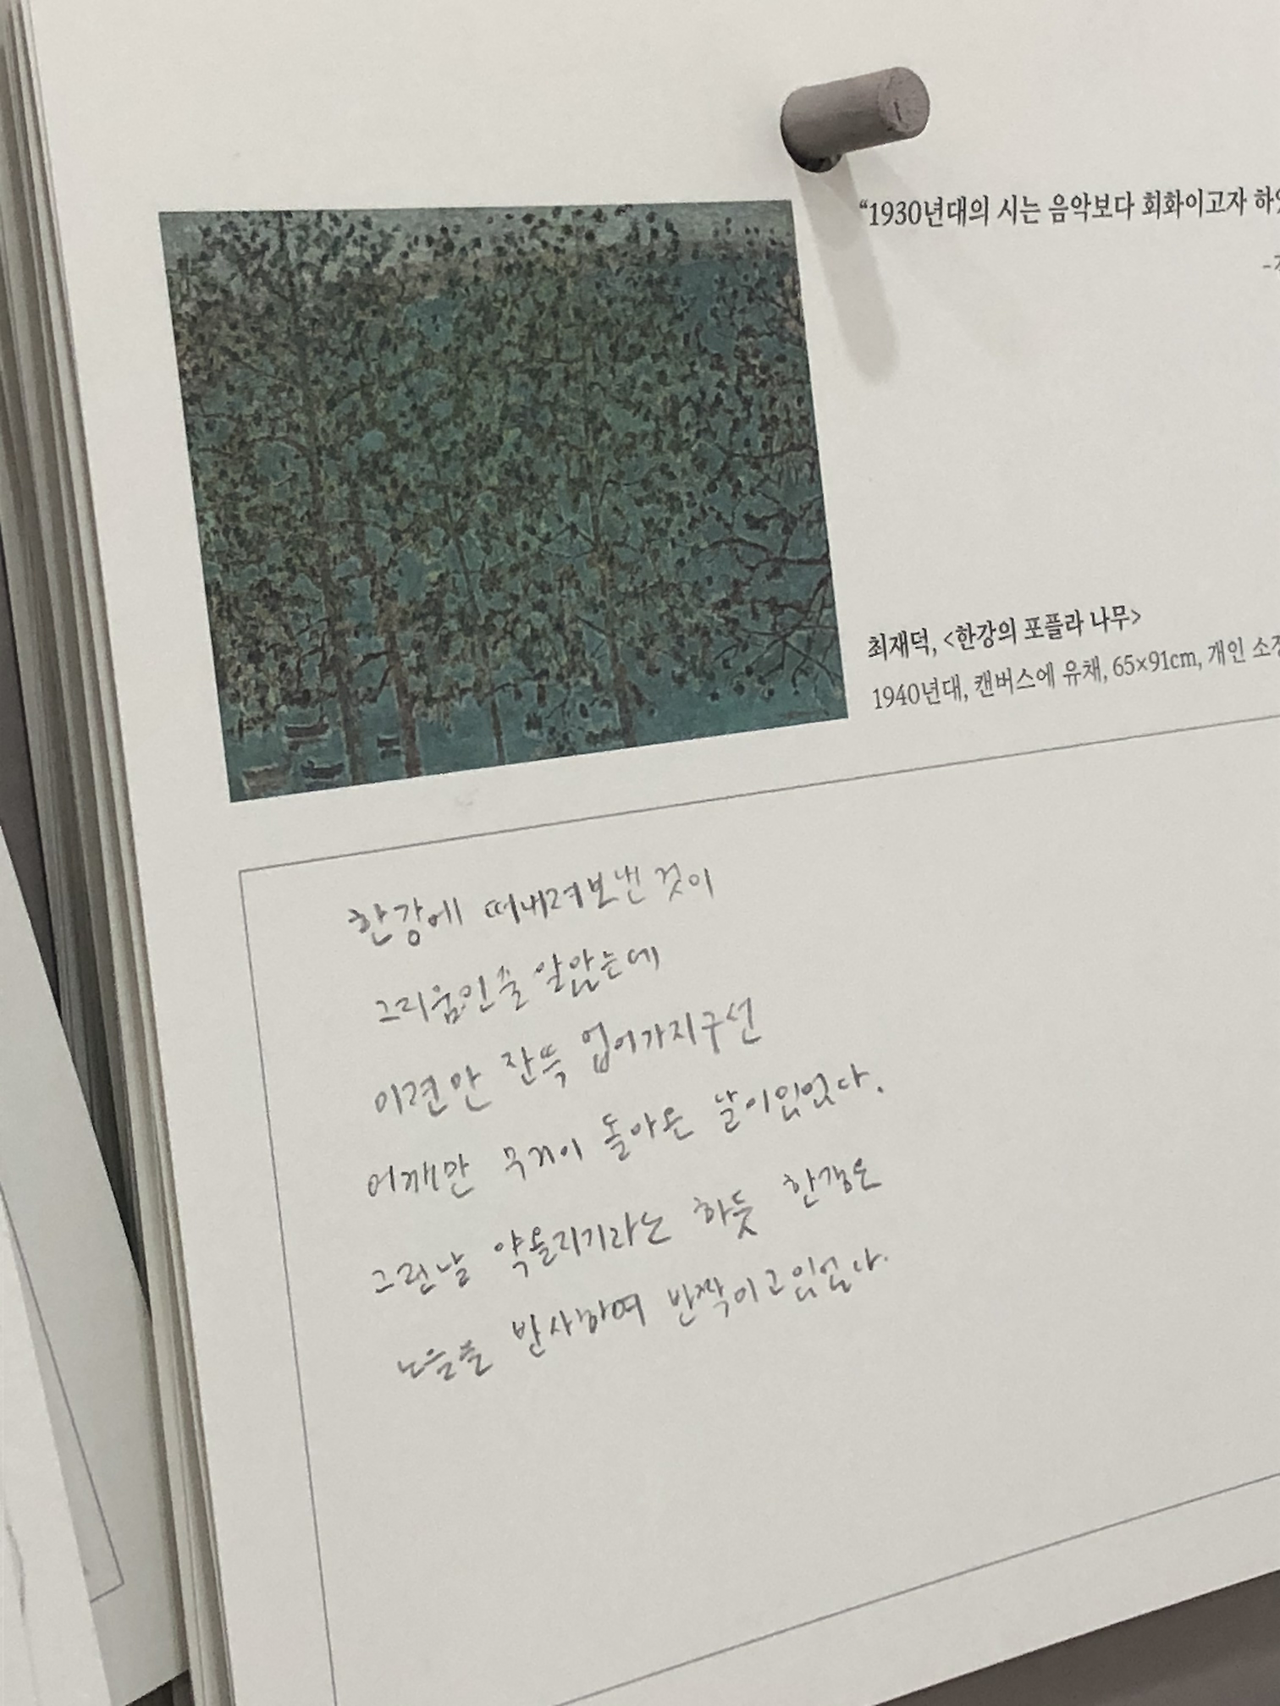 “1930년대의 시는 음악보다 회화이고자 하
최재덕, <한강의 포플라 나무>
1940년대, 캔버스에 유채, 65×91cm, 개인 소
한강에 떠내려보낸 것이
그리움인줄 알았는데
미련만 잔뜩 업어가지구선
어깨만 무거이 돌아온 날이있었다.
그런날 약올리기라노 하듯 한강은
노을을 반사하여 반짝이고있었다.